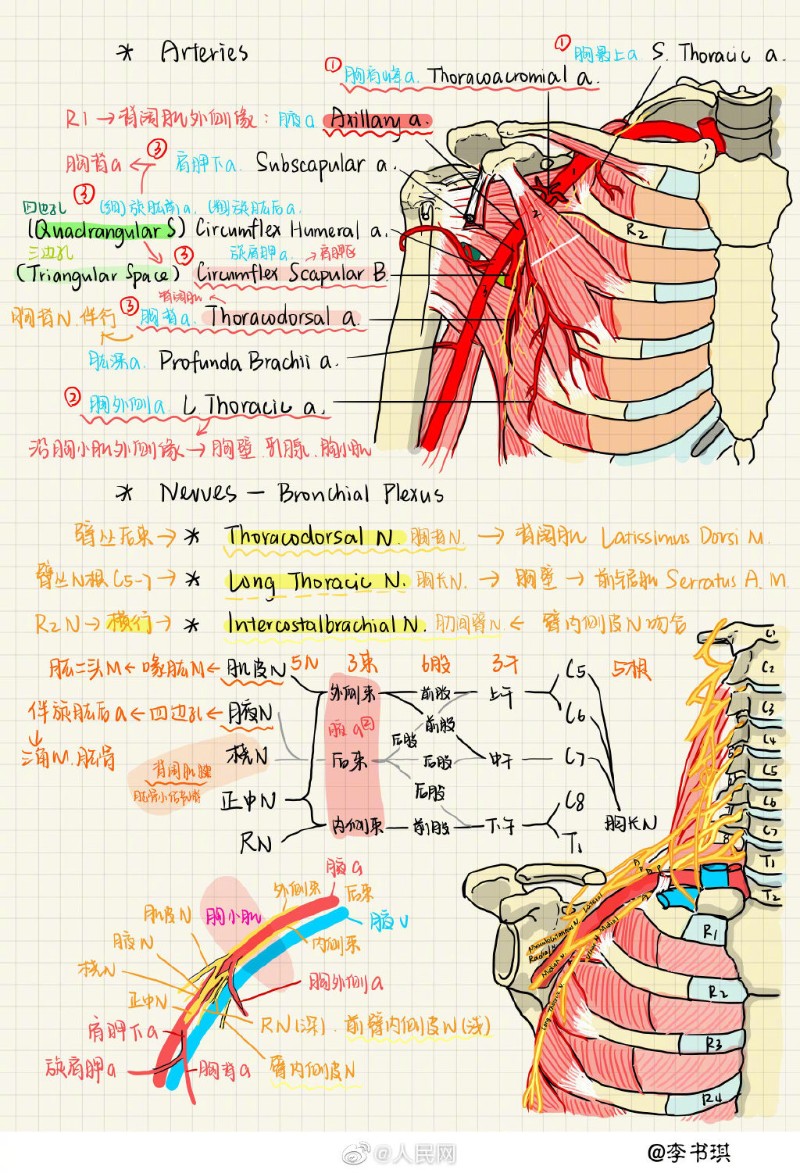 * Arteries
① 胸肩峰a. Thoracoacromial a.
① 胸最上a S. Thoracic a.
R1 → 背阔肌外侧缘: 腋a Axillary a.
胸背a ← ③ 肩胛下a. Subscapular a.
四边孔 ③ 旋肱前a. 旋肱后a.
(Quadrangular S) Circumflex Humeral a.
三边孔 旋肩胛a. → 肩胛区
(Triangular Space) ③ Circumflex Scapular B.
背阔肌
胸背N.伴行 ③ 胸背a. Thoracodorsal a.
肱深a. Profunda Brachii a.
② 胸外侧a L Thoracic a.
沿胸小肌外侧缘 → 胸壁.乳腺.胸小肌
R2
* Nerves — Bronchial Plexus
臂丛后束 → * Thoracodorsal N. 胸背N. → 背阔肌 Latissimus Dorsi M.
臂丛N根C5-7 → * Long Thoracic N. 胸长N. → 胸壁 → 前锯肌 Serratus A. M.
R2N → 横行 → * Intercostalbrachial N. 肋间臂N. ← 臂内侧皮N吻合
肱二头M ← 喙肱M ← 肌皮N 5N 3束 6股 3干 5根
外侧束 前股 上干 C5
伴旋肱后a ← 四边孔 ← 腋N 腋a 前股 C6
三角M.肱骨 桡N 后束 后股 后股 中干 C7
背阔肌腱
正中N 后股 C8
RN 内侧束 前股 下干 T1 胸长N
C1
C2
C3
C4
C5
C6
C7
T1
T2
腋a
外侧束 后束
肌皮N 胸小肌 腋V
腋N 内侧束
桡N 胸外侧a
正中N RN(深).前臂内侧皮N(浅)
肩胛下a
旋肩胛a 胸背a 臂内侧皮N
R1
R2
R3
R4
@人民网
@李书琪